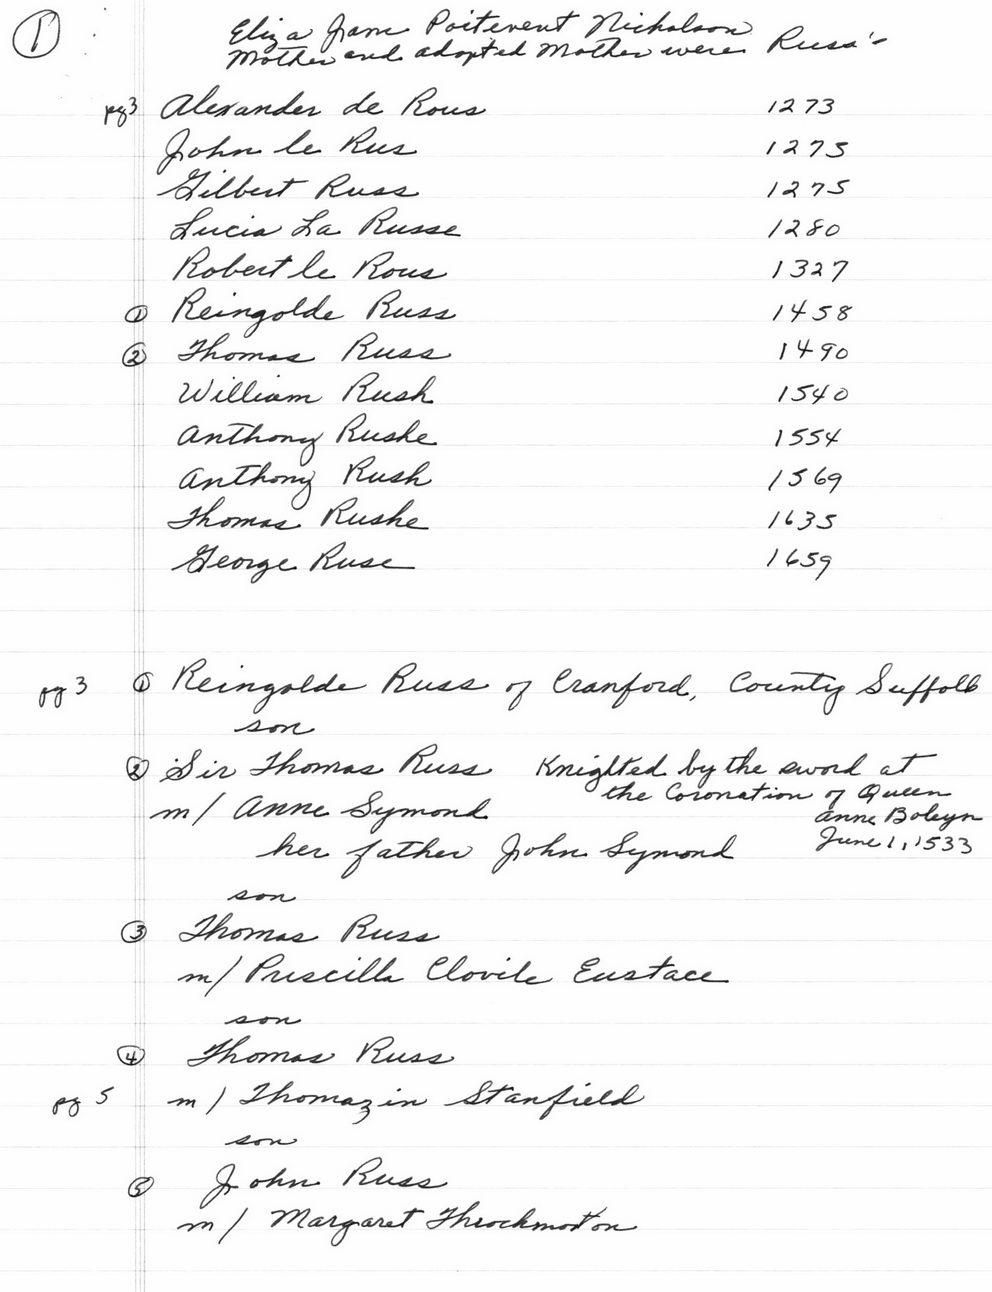 ①
Eliza Jane Poitevent Nicholson
Mother and adopted Mother were Russ's
pg 3 Alexander de Rous 1273
John le Rus 1275
Gilbert Russ 1275
Lucia La Russe 1280
Robert le Rous 1327
① Reingolde Russ 1458
② Thomas Russ 1490
William Rush 1540
Anthony Rushe 1554
Anthony Rush 1569
Thomas Rushe 1635
George Ruse 1659
pg 3 ① Reingolde Russ of Cranford, County Suffolk
son
② Sir Thomas Russ Knighted by the sword at
the Coronation of Queen
m/ Anne Symond Anne Boleyn
June 1, 1533
her father John Symond
son
③ Thomas Russ
m/ Priscilla Clovile Eustace
son
④ Thomas Russ
pg 5 m/ Thomazin Stanfield
son
⑤ John Russ
m/ Margaret Throckmorton